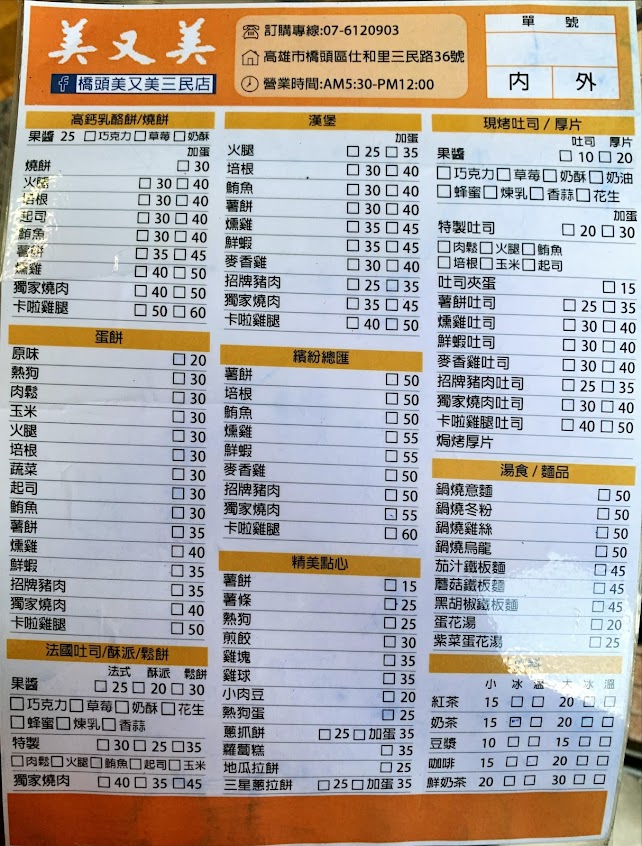 美又美
橋頭美又美三民店
訂購專線:07-6120903
高雄市橋頭區仕和里三民路36號
營業時間:AM5:30-PM12:00
單 號
內 外
高鈣乳酪餅/燒餅
果醬 25 □巧克力□草莓□奶酥
加蛋
燒餅 □30
火腿 □30□40
培根 □30□40
起司 □30□40
鮪魚 □30□40
薯餅 □35□45
燻雞 □40□50
獨家燒肉 □40□50
卡啦雞腿 □50□60
蛋餅
原味 □20
熱狗 □30
肉鬆 □30
玉米 □30
火腿 □30
培根 □30
蔬菜 □30
起司 □30
鮪魚 □30
薯餅 □35
燻雞 □40
鮮蝦 □35
招牌豬肉 □35
獨家燒肉 □40
卡啦雞腿 □50
法國吐司/酥派/鬆餅
法式 酥派 鬆餅
果醬 □25□20□30
□巧克力□草莓□奶酥□花生
□蜂蜜□煉乳□香蒜
特製 □30□25□35
□肉鬆□火腿□鮪魚□起司□玉米
獨家燒肉 □40□35□45
漢堡
加蛋
火腿 □25□35
培根 □30□40
鮪魚 □30□40
薯餅 □30□40
燻雞 □35□45
鮮蝦 □35□45
麥香雞 □30□40
招牌豬肉 □25□35
獨家燒肉 □35□45
卡啦雞腿 □40□50
繽紛總匯
薯餅 □50
培根 □50
鮪魚 □50
燻雞 □55
鮮蝦 □55
麥香雞 □50
招牌豬肉 □50
獨家燒肉 □55
卡啦雞腿 □60
精美點心
薯餅 □15
薯條 □25
熱狗 □25
煎餃 □30
雞塊 □35
雞球 □35
小肉豆 □20
熱狗蛋 □25
蔥抓餅 □25□加蛋35
蘿蔔糕 □35
地瓜拉餅 □25
三星蔥拉餅 □25□加蛋35
現烤吐司/厚片
吐司 厚片
果醬 □10□20
□巧克力□草莓□奶酥□奶油
□蜂蜜□煉乳□香蒜□花生
加蛋
特製吐司 □20□30
□肉鬆□火腿□鮪魚
□培根□玉米□起司
吐司夾蛋 □15
薯餅吐司 □25□35
燻雞吐司 □30□40
鮮蝦吐司 □30□40
麥香雞吐司 □30□40
招牌豬肉吐司 □25□35
獨家燒肉吐司 □30□40
卡啦雞腿吐司 □40□50
焗烤厚片
湯食/麵品
鍋燒意麵 □50
鍋燒冬粉 □50
鍋燒雞絲 □50
鍋燒烏龍 □50
茄汁鐵板麵 □45
蘑菇鐵板麵 □45
黑胡椒鐵板麵 □45
蛋花湯 □20
紫菜蛋花湯 □25
小 冰 溫 大 冰 溫
紅茶 15 □ □ 20 □ □
奶茶 15 □ □ 20 □ □
豆漿 10 □ □ 15 □ □
咖啡 15 □ □ 20 □ □
鮮奶茶 20 □ □ 30 □ □